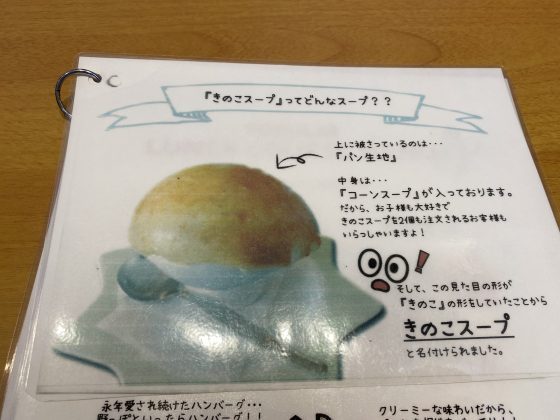 『きのこスープ』ってどんなスープ??
上に被さっているのは…
『パン生地』
中身は…
『コーンスープ』が入っております。
だから、お子様も大好きで
きのこスープを2個も注文されるお客様も
いらっしゃいますよ!
そして、この見た目の形が
『きのこ』の形をしていたことから
きのこスープ
と名付けられました。
永年愛され続けたハンバーグ…
クリーミーな味わいだから、